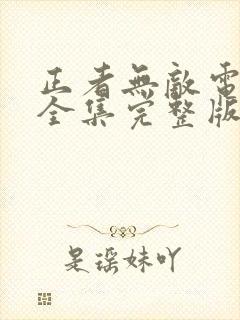 正者無敵電
全集完整版
是瑤妹吖